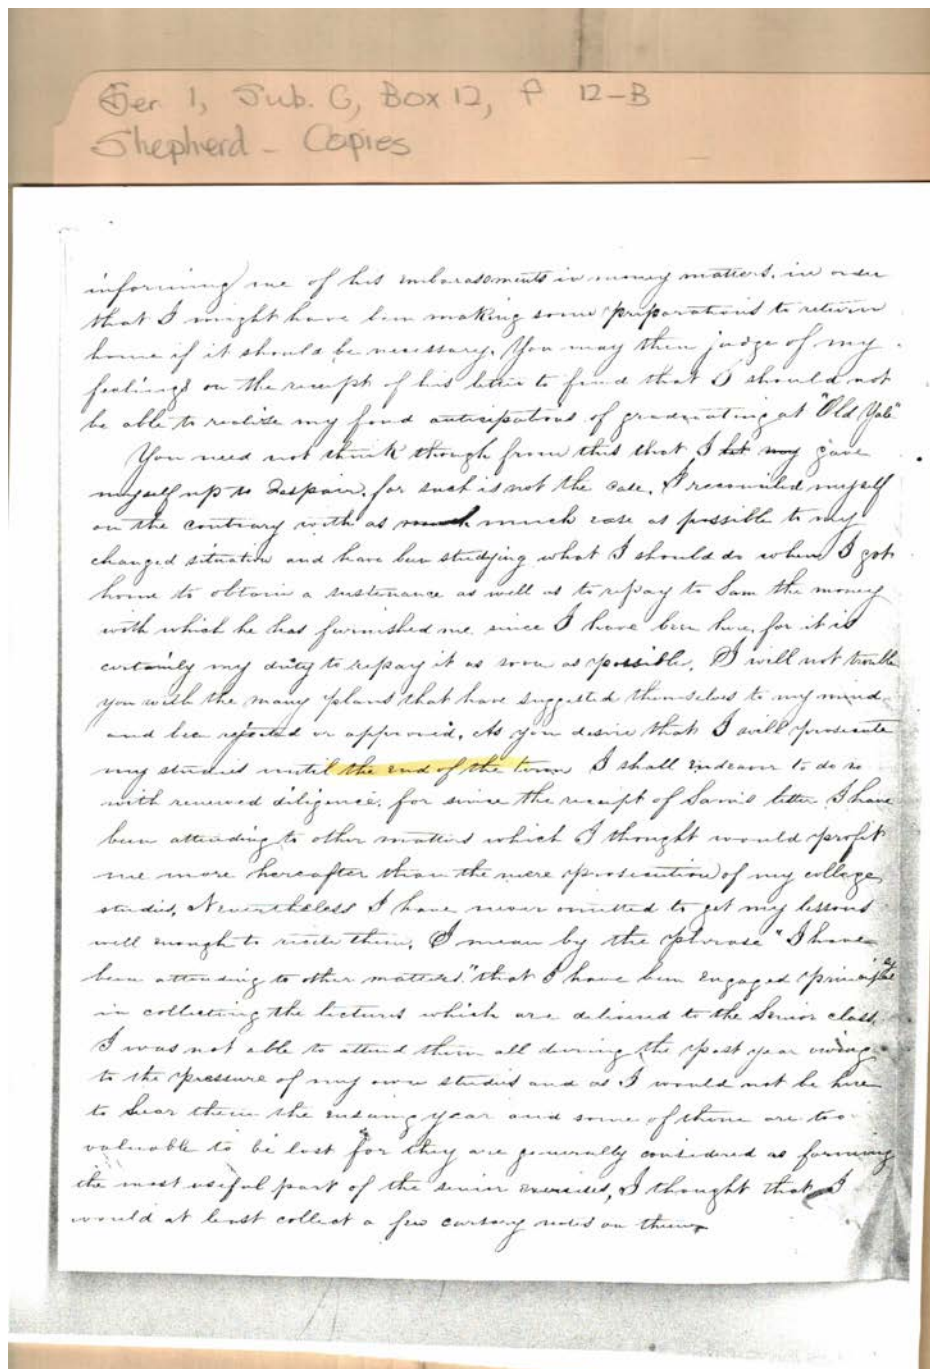 Ser 1, Sub. G, Box 12, f 12-B
Shepherd - Copies
informing me of his embarassments in money matters, in order
that I might have been making some preparations to return
home if it should be necessary. You may then judge of my
feelings on the receipt of his letter to find that I should not
be able to realize my fond anticipations of graduating at "Old Yale"
You need not think though from this that I let my gave
myself up to despair, for such is not the case. I reconciled myself
on the contrary with as much much ease as possible to my
changed situation and have been studying what I should do when I got
home to obtain a sustenance as well as to repay to Sam the money
with which he has furnished me since I have been here, for it is
certainly my duty to repay it as soon as possible. I will not trouble
you with the many plans that have suggested themselves to my mind
and been rejected or approved. As you desire that I will prosecute
my studies until the end of the term I shall endeavor to do so
with renewed diligence, for since the receipt of Sam's letter I have
been attending to other matters which I thought would profit
me more hereafter than the mere prosecution of my college
studies. Nevertheless I have never omitted to get my lessons
well enough to recite them. I mean by the phrase "I have
been attending to other matters" that I have been engaged principally
in collecting the lectures which are delivered to the Senior class.
I was not able to attend them all during the past year owing
to the pressure of my own studies and as I would not be here
to hear them the ensuing year and some of them are too
valuable to be lost for they are generally considered as forming
the most useful part of the senior exercises, I thought that I
would at least collect a few cursory notes on them